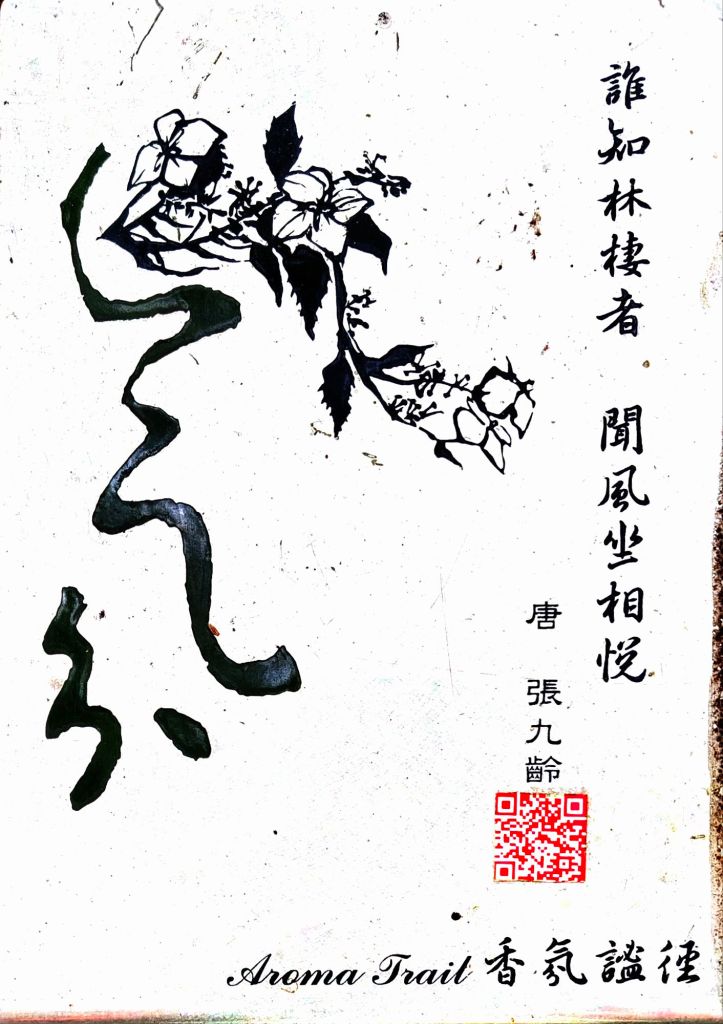 誰知林棲者 聞風坐相悅
唐 張九齡
Aroma Trail 香氛謐徑